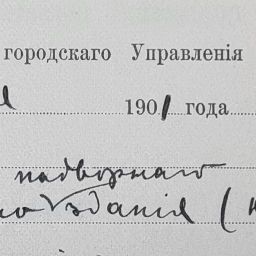 городскаго Управленія
1901 года
надворнаго
зданія (